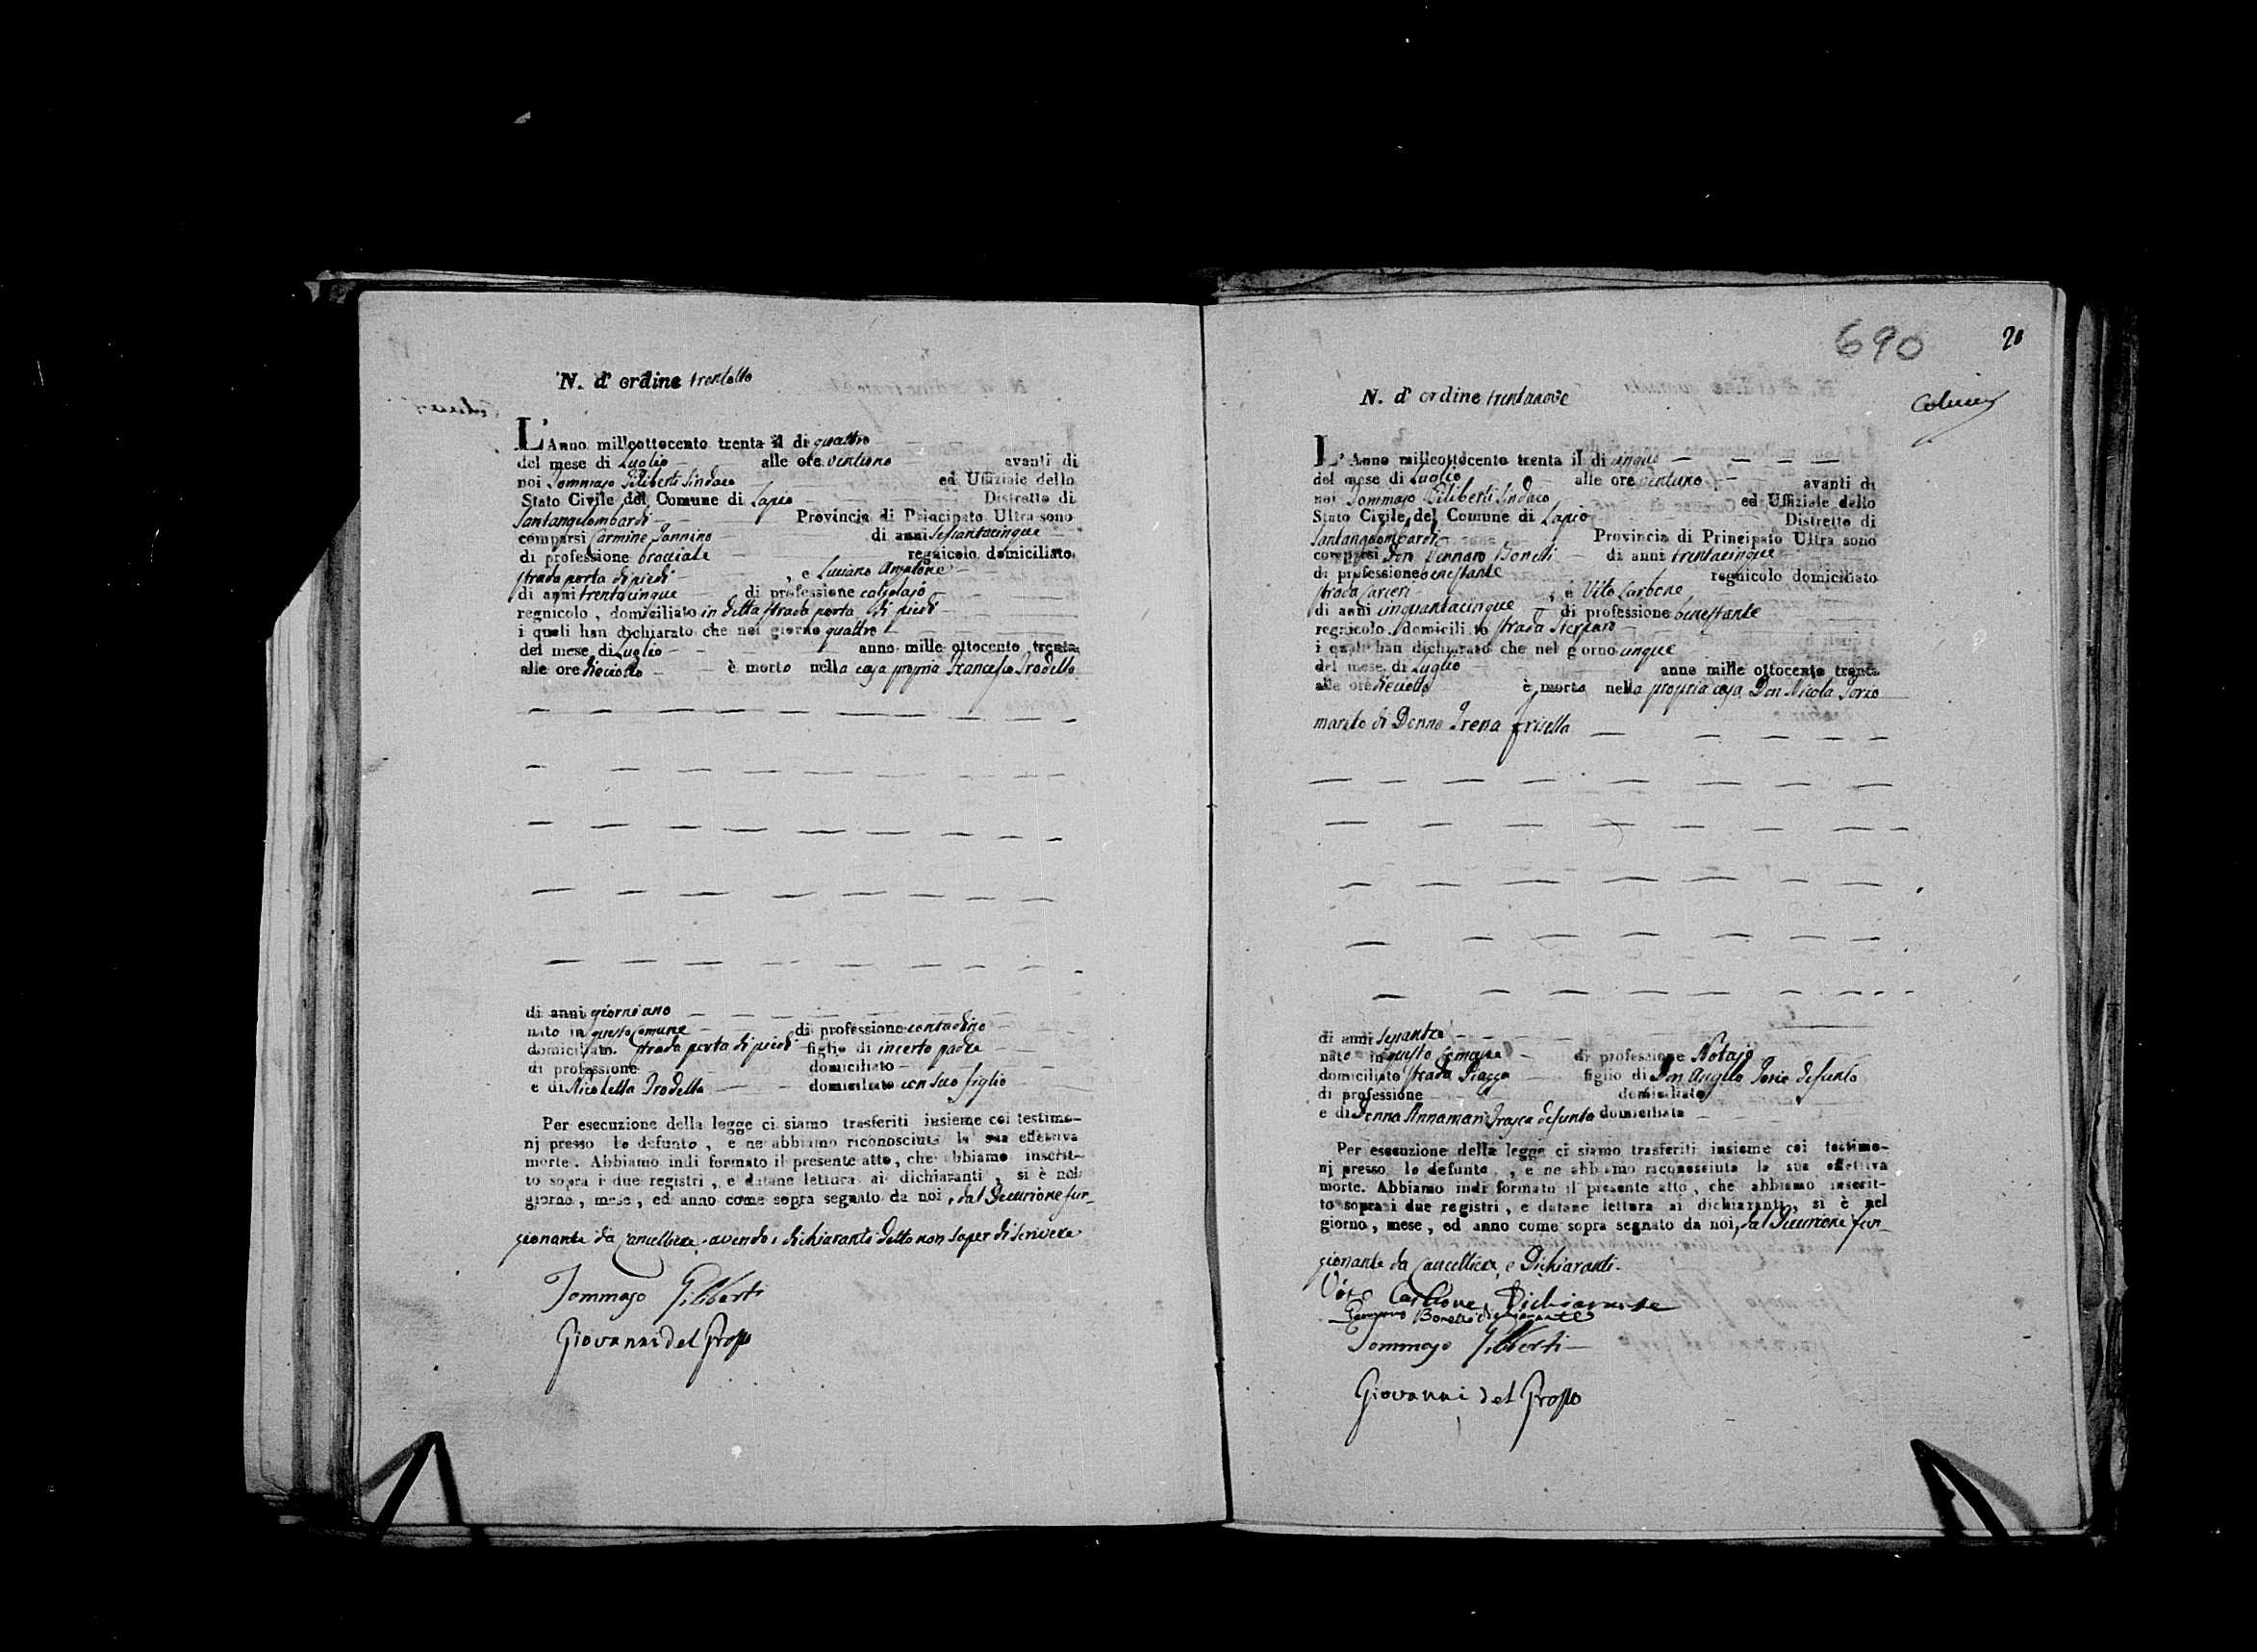 N. d' ordine trentotto
L'Anno millcottocento trenta il di quattro
del mese di Luglio alle ore ventuno avanti di
noi Tommaso Filiberti Sindaco ed Uffiziale dello
Stato Civile del Comune di Lapio Distretto di
Santangelombardi Provincia di Principato Ultra sono
comparsi Carmine di anni sessantacinque
di professione bracciale regnicolo domiciliato
strada porta di piedi , e Luciano
di anni trentacinque di professione calzolajo
regnicolo , domiciliato in detta strada porta di piedi
i quali han dichiarato che nel giorno quattro
del mese di Luglio anno mille ottocento trenta
alle ore dieciotto è morto nella casa propria Francesco Prodello
di anni giorni uno
nato in questo Comune di professione contadino
domiciliato strada porta di piedi figlio di incerto padre
di professione domiciliato
e di Nicoletta Prodella domiciliato con suo figlio
Per esecuzione della legge ci siamo trasferiti insieme coi testimo-
nj presso lo defunto , e ne abbiamo riconosciuta la sua effettiva
morte. Abbiamo indi formato il presente atto, che abbiamo inscrit-
to sopra i due registri , e datane lettura ai dichiaranti , si è nel
giorno , mese , ed anno come sopra segnato da noi , dal Decurione fun-
zionante da Cancelliere, avendo i dichiaranti detto non saper di scrivere
Tommaso Filiberti
Giovanni del Grosso
690
20
N. d' ordine trentanove
L'Anno millcottocento trenta il di cinque
del mese di Luglio alle ore ventuno avanti di
noi Tommaso Filiberti Sindaco ed Uffiziale dello
Stato Civile del Comune di Lapio Distretto di
Santangelombardi Provincia di Principato Ultra sono
comparsi Don Gennaro Bonelli di anni trentacinque
di professione benestante regnicolo domiciliato
strada Carceri , e Vito Carbone
di anni cinquantacinque di professione benestante
regnicolo domiciliato strada
i quali han dichiarato che nel giorno cinque
del mese di Luglio anno mille ottocento trenta
alle ore dieciotto è morto nella propria casa Don Nicola Iorio
marito di Donna Irena Frisella
di anni sesanta
nato in questo Comune di professione Notajo
domiciliato strada Piazza figlio di Don Angelo Iorio defunto
di professione domiciliato
e di Donna Annamaria defunta domiciliata
Per esecuzione della legge ci siamo trasferiti insieme coi testimo-
nj presso lo defunto , e ne abbiamo riconosciuta la sua effettiva
morte. Abbiamo indi formato il presente atto , che abbiamo inscrit-
to sopra i due registri , e datane lettura ai dichiaranti, si è nel
giorno, mese , ed anno come sopra segnato da noi, dal Decurione fun-
zionante da Cancelliere, e Dichiaranti.
Vito Carbone Dichiarante
Gennaro Bonelli dichiarante
Tommaso Filiberti
Giovanni del Grosso